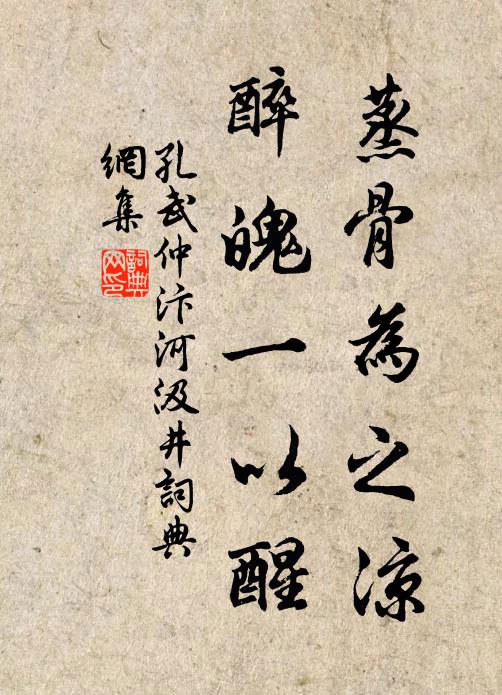 蒸骨為之涼
醉魄一以醒
孔武仲汴河汲井詞典
網集
詞典
网印